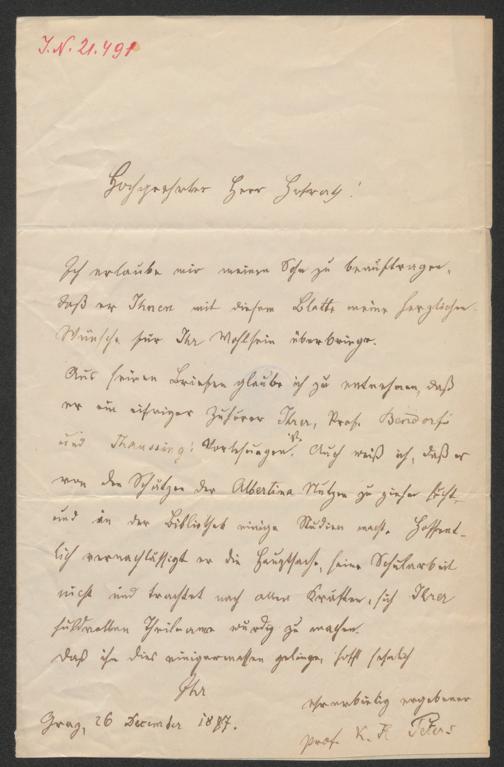 J. N. 21.491
Hochgeehrter Herr Hofrath!
Ich erlaube mir meinen Sohn zu beauftragen,
daß er Ihnen mit diesem Blatte meine herzlichen
Wünsche für Ihr Wohlsein überbringe.
Aus seinen Briefen glaube ich zu entnehmen, daß
er ein eifriger Zuhörer Ihrer, Prof. Benndorfs
und Thaussing's Vorlesungen ist. Auch weiß ich, daß er
von den Schätzen der Albertina Nutzen zu ziehen sucht
und in der Bibliothek einige Studien macht. Hoffent-
lich vernachlässigt er die Hauptsache, seine Schularbeit
nicht und trachtet nach allen Kräften, sich Ihrer
huldvollen Theilname würdig zu machen.
Daß ihm dies einigermassen gelinge, hofft sehnlich
Ihr
ehrerbietig ergebener
Graz, 26 December 1877.
Prof. K. F. Peters